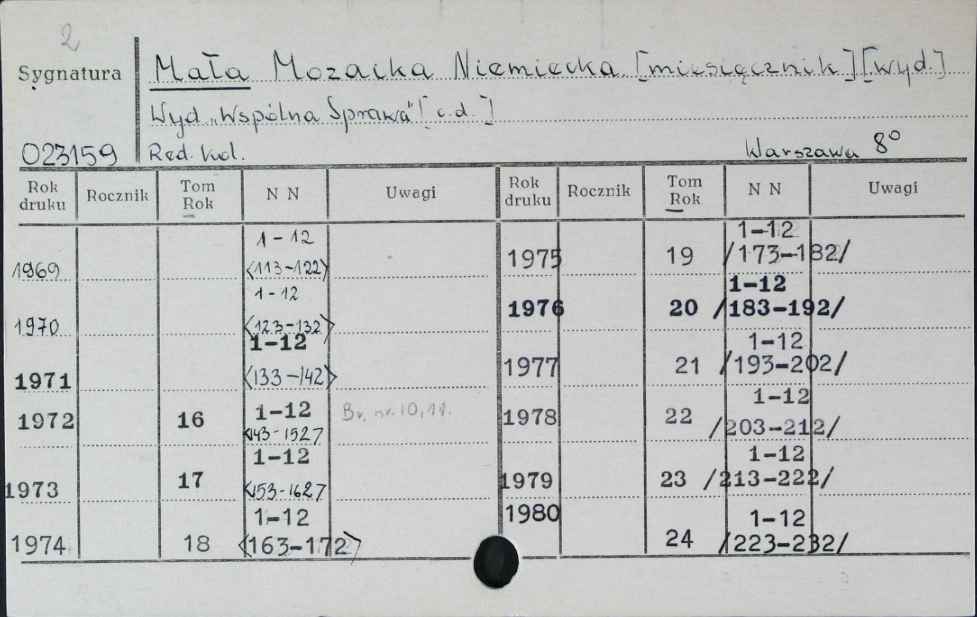 2
Sygnatura
Mała Mozaika Niemiecka [miesięcznik] [wyd.]
Wyd „Wspólna Sprawa" [c.d.]
023159 Red. kol. Warszawa 8°
Rok druku Rocznik Tom Rok N N Uwagi Rok druku Rocznik Tom Rok N N Uwagi
1969 1-12 <113-122>
1970 1-12 <123-132>
1971 1-12 <133-142>
1972 16 1-12 <143-152> Br. nr. 10, 11.
1973 17 1-12 <153-162>
1974 18 1-12 <163-172>
1975 19 1-12 /173-182/
1976 20 1-12 /183-192/
1977 21 1-12 /193-202/
1978 22 1-12 /203-212/
1979 23 1-12 /213-222/
1980 24 1-12 /223-232/